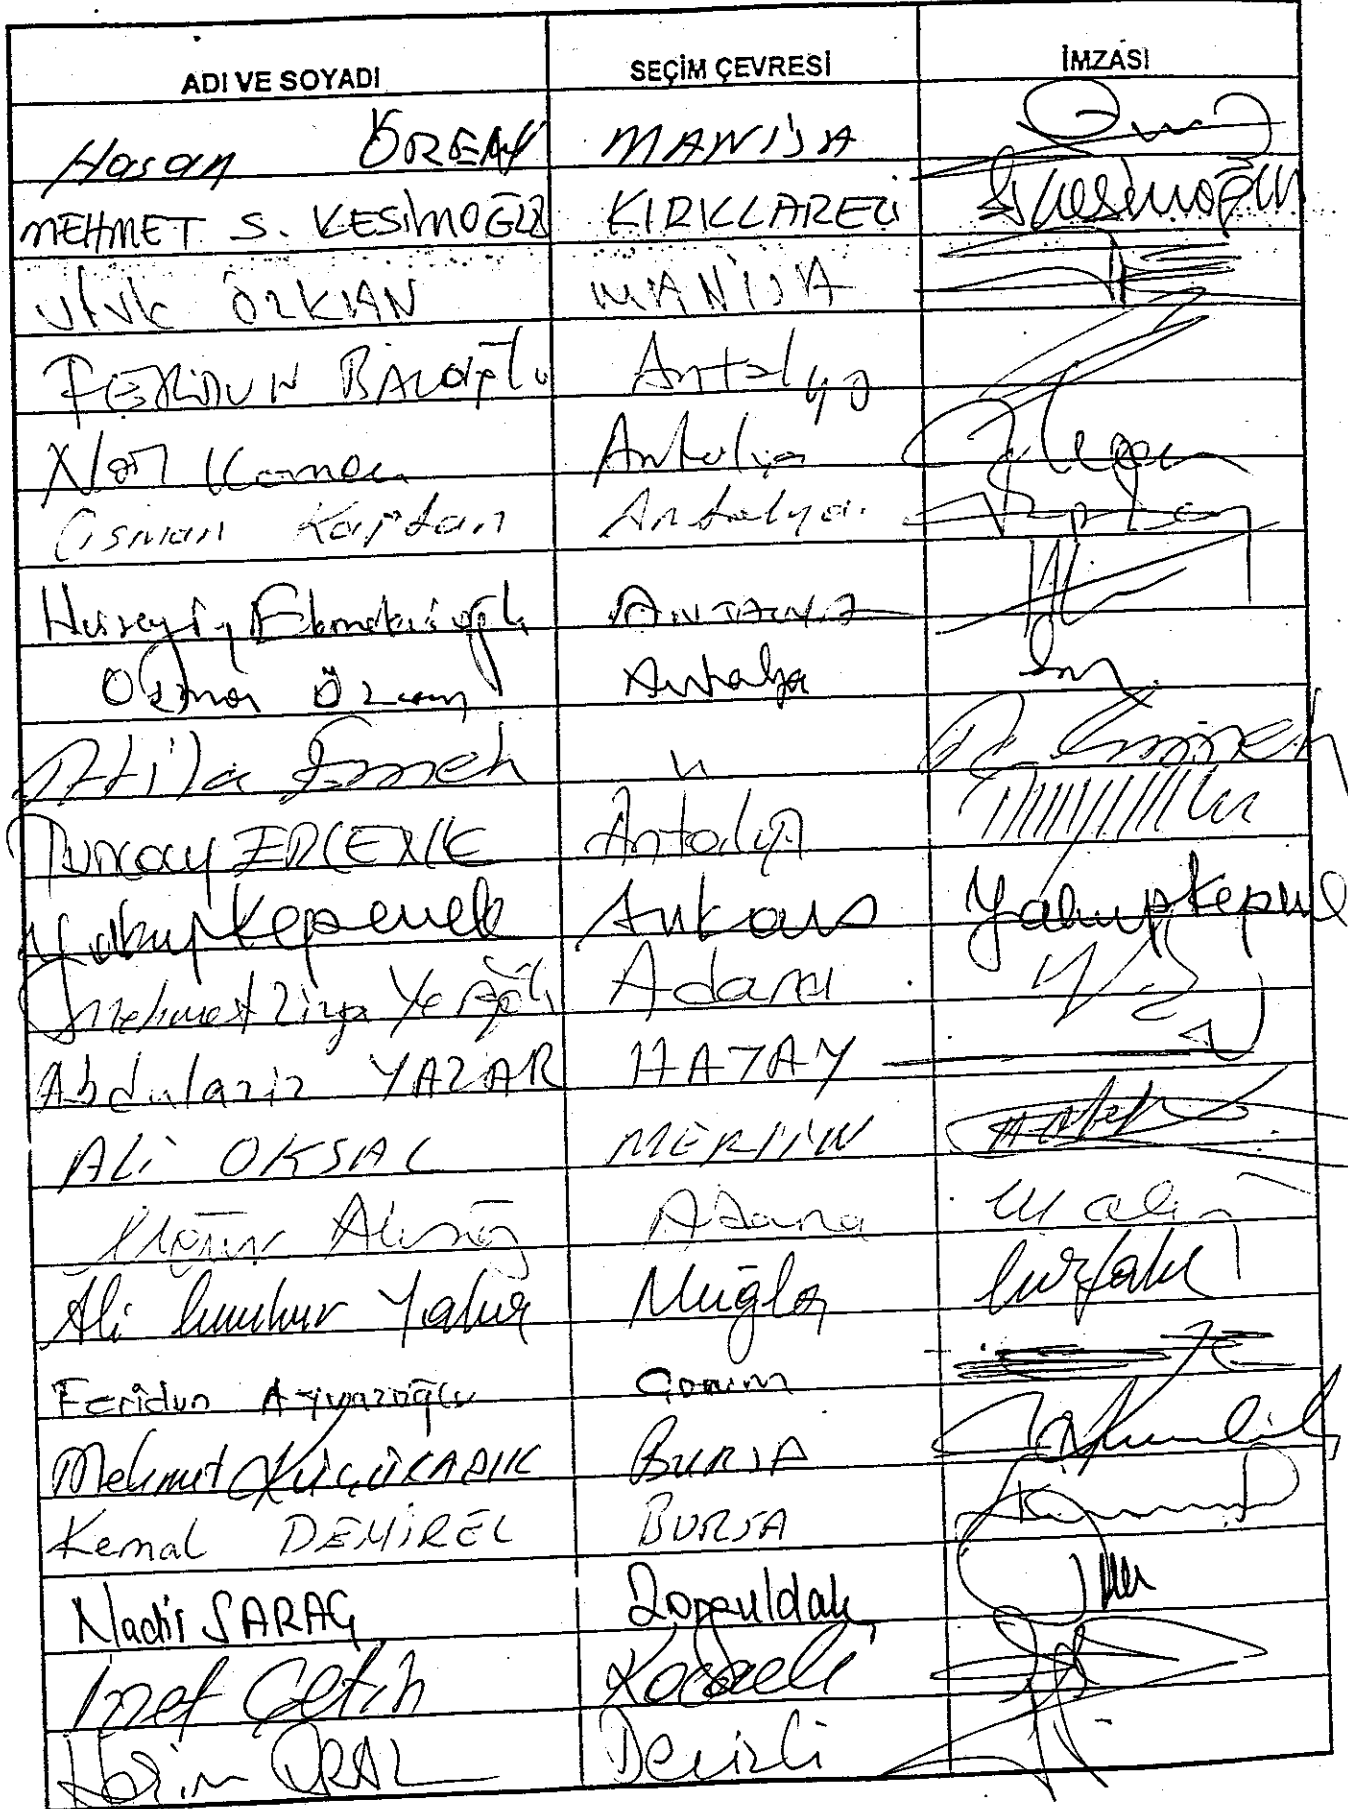 ADI VE SOYADI SEÇİM ÇEVRESİ İMZASI
Hasan ÖREN MANİSA
MEHMET S. KESİMOĞLU KIRKLARELİ Kesimoğlu
Ufuk ÖZKAN MANİSA
FERİDUN BALOĞLU Antalya
Nail Kamacı Antalya
Osman Kaptan Antalya
Hüseyin Ekmekcioğlu ANTALYA
Osman Özcan Antalya
Atila Emek " A. Emek
Tuncay ERCENK Antalya
Yakup Kepenek Ankara Yakup Kepenek
Mehmet Ziya Yergök Adana
Abdulaziz YAZAR HATAY
ALİ OKSAL MERSİN
Adana
Ali Cumhur Yaka Muğla
Feridun Ayvazoğlu Çorum
Mehmet KÜÇÜKAŞIK BURSA
Kemal DEMİREL BURSA
Nadir SARAÇ Zonguldak
İzzet Çetin Kocaeli
ORAL Denizli